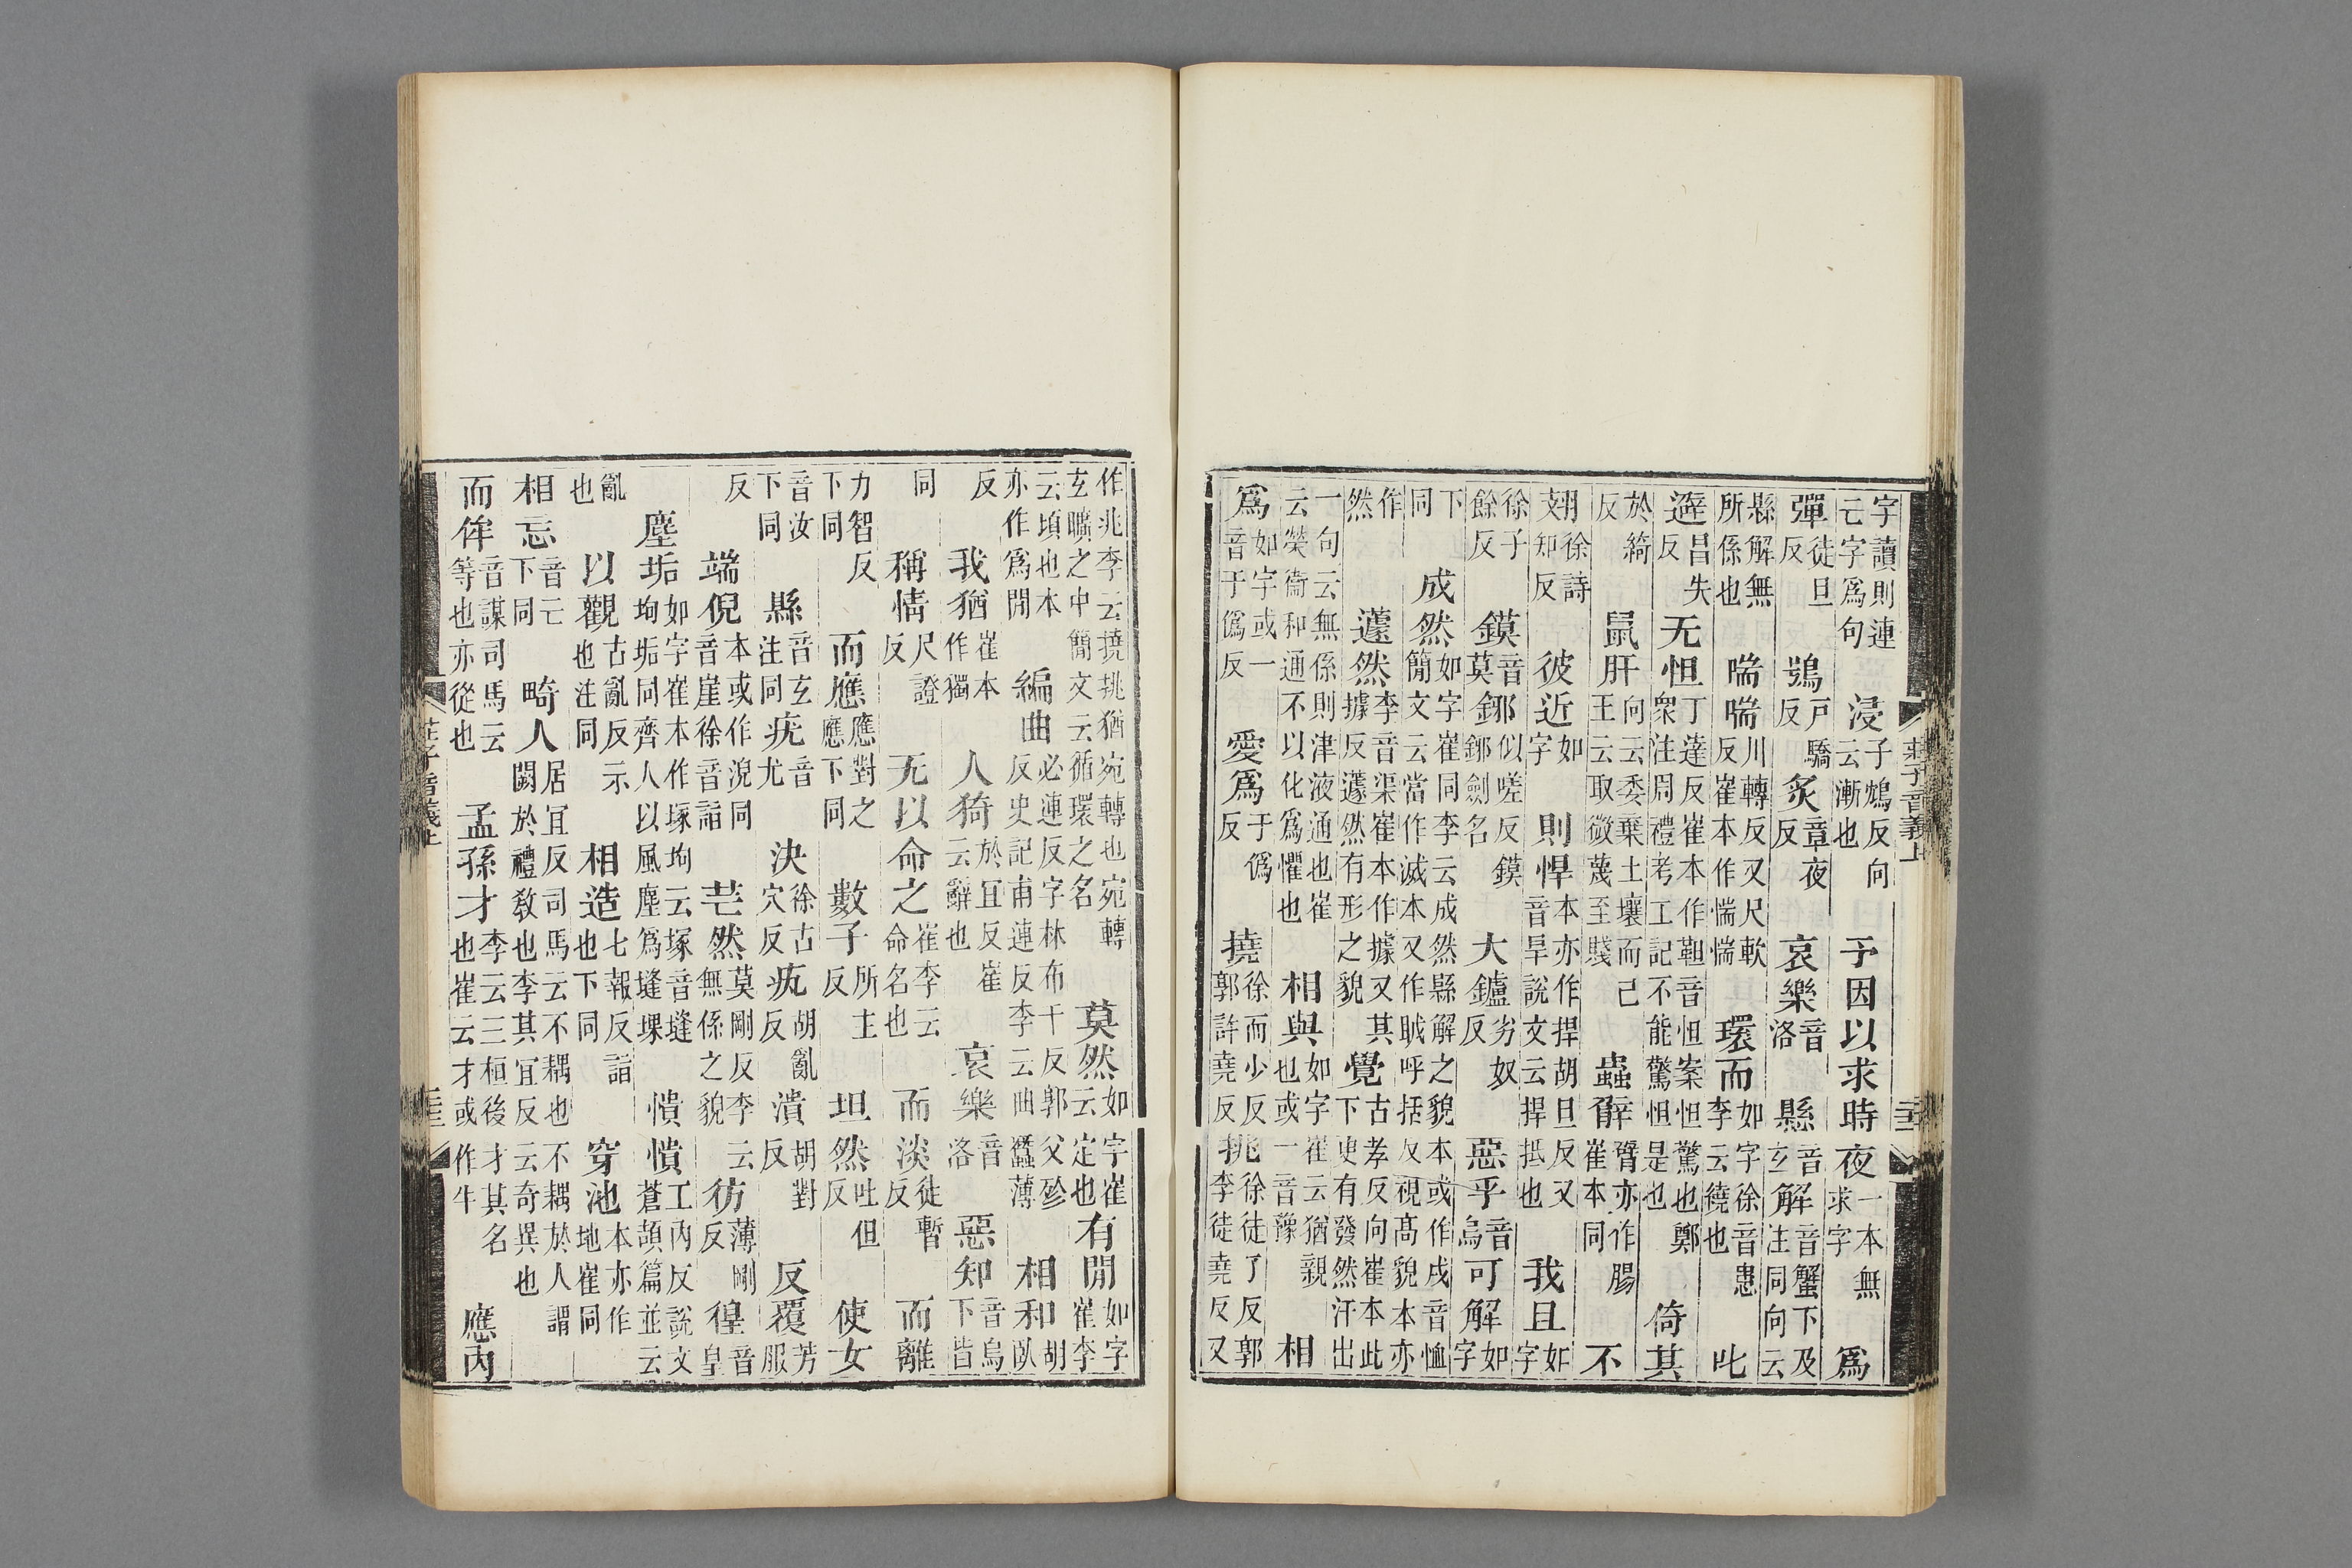 字讀則連亡字爲句浸子鴆反向云漸也予因以求時夜一本無求字爲
彈徒旦反鴞戶驕反炙章夜反哀樂音洛縣音玄解音蟹下及注同向云
縣解無所係也喘喘川轉反又尺軟反崔本作惴惴環而如字徐音患李云繞也叱
避昌失反无怛丁達反崔本作靼音怛案怛驚也鄭衆注周禮考工記不能驚怛是也倚其
於綺反鼠肝向云委棄土壤而已王云取微蔑至賤蟲臂臂亦作腸崔本同不
翅徐詩知反彼近如字則悍本亦作捍胡旦反又音旱說文云捍抵也我且如字
徐子餘反鏌音莫鋣似嗟反鏌鋣劍名大鑪劣奴反惡乎音烏可解如字
下同成然如字崔同李云成然縣解之貌本或作戌音恤簡文云當作滅本又作呼括反視高貌本亦
作然蘧然李音渠崔本作據又其據反蘧然有形之貌覺古孝反向崔本此下更有發然汗出
一句云無係則津液通也崔云榮衞和通不以化爲懼也相與如字崔云猶親也或一音豫相
爲如字或一音于僞反愛爲于僞反撓徐而少反郭許堯反挑徐徒了反郭李徒堯反又
作兆李云撓挑猶宛轉也宛轉玄曠之中簡文云循環之名莫然如字崔云定也有閒如字崔李
云頃也本亦作爲閒編曲必連反字林布千反郭父殄反史記甫連反李云曲蠶薄相和胡臥
反我猶崔本作獨人猗於宜反崔云辭也哀樂音洛惡知音烏下皆
同稱情尺證反无以命之崔李云命名也而淡徒暫反而離
力智反下同而應應對之應下同數子所主反坦然吐但反使女
音汝下同縣音玄注同疣音尤決徐古穴反𤴯胡亂反潰胡對反反覆芳服
反端倪本或作淣同音崖徐音詣芒然莫剛反李云無係之貌彷薄剛反徨音皇
塵垢如字崔本作塚坸云塚音塳坸垢同齊人以風塵爲塳堁憒憒工內反說文蒼頡篇並云
亂也以觀古亂反示也注同相造七報反詣也下同穿池本亦作地崔同
相忘音亡下同畸人居宜反司馬云不耦也不耦於人謂闕於禮敎也李其宜反云奇異也
而侔音謀司馬云等也亦從也孟孫才李云三桓後才其名也崔云才或作牛應內
莊子音義上